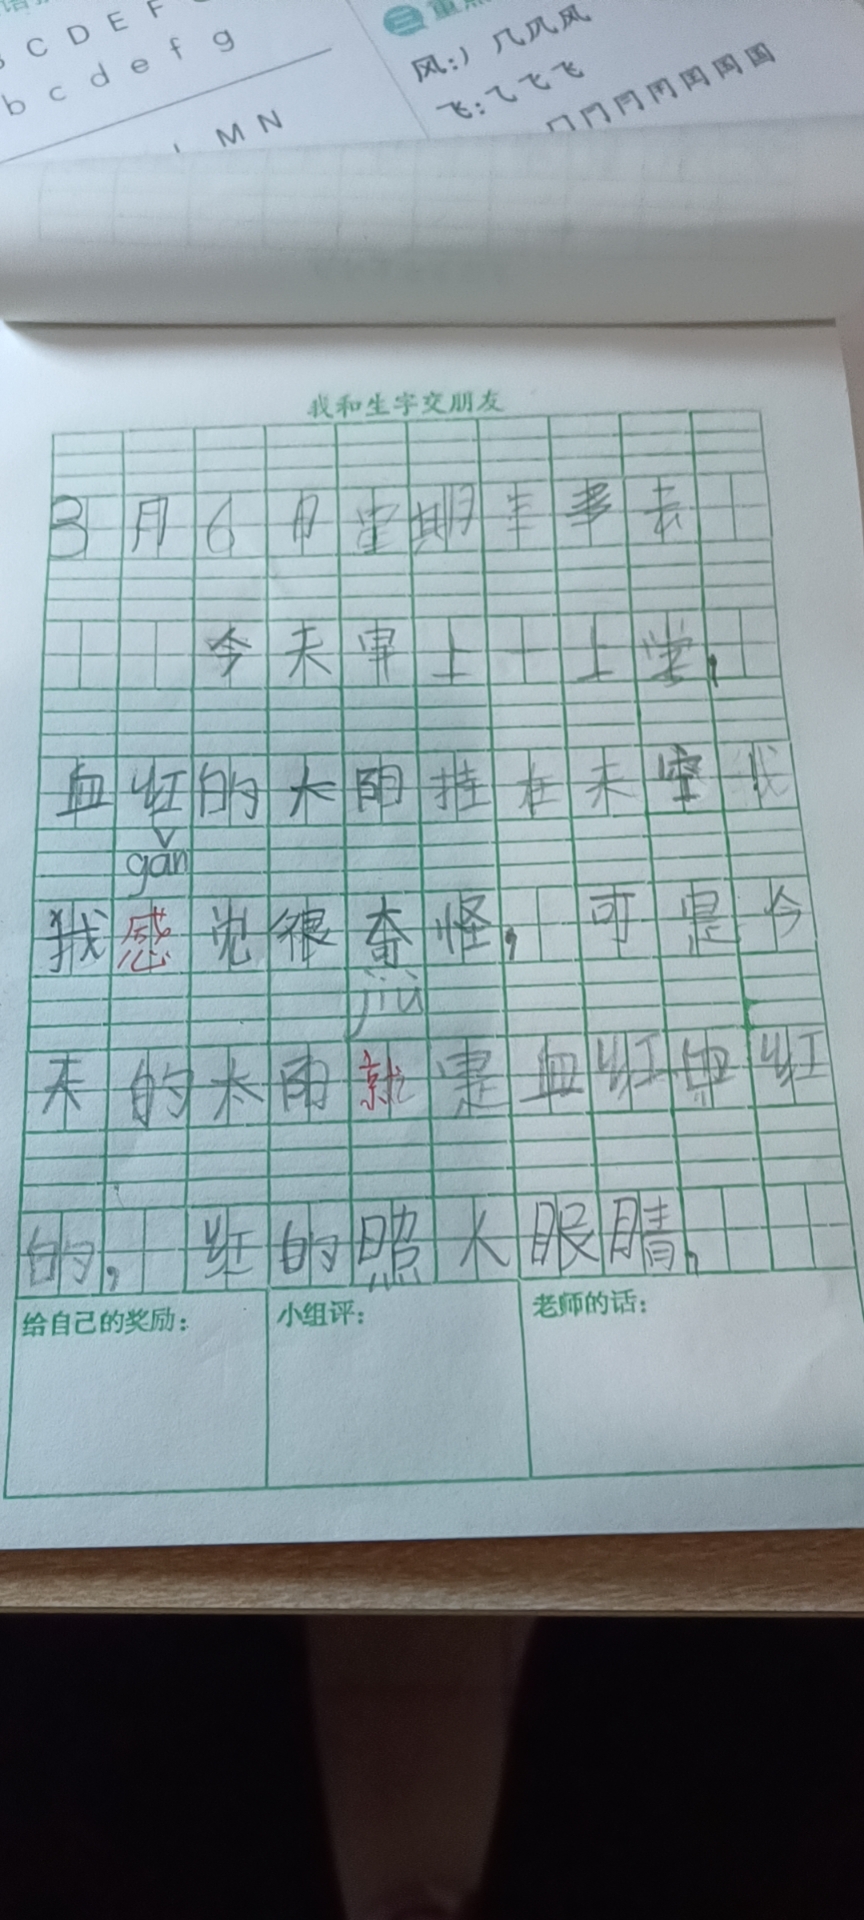 C D E F
b c d e f g
M N
风:) 几凡风
飞:乁飞飞
我和生字交朋友
3月6日星期
今天早上上学,
血红的太阳挂在天空 我
gǎn
我感觉很奇怪,可是今
jiù
天的太阳就是血红血红
的,红的照人眼睛,
给自己的奖励:
小组评:
老师的话: